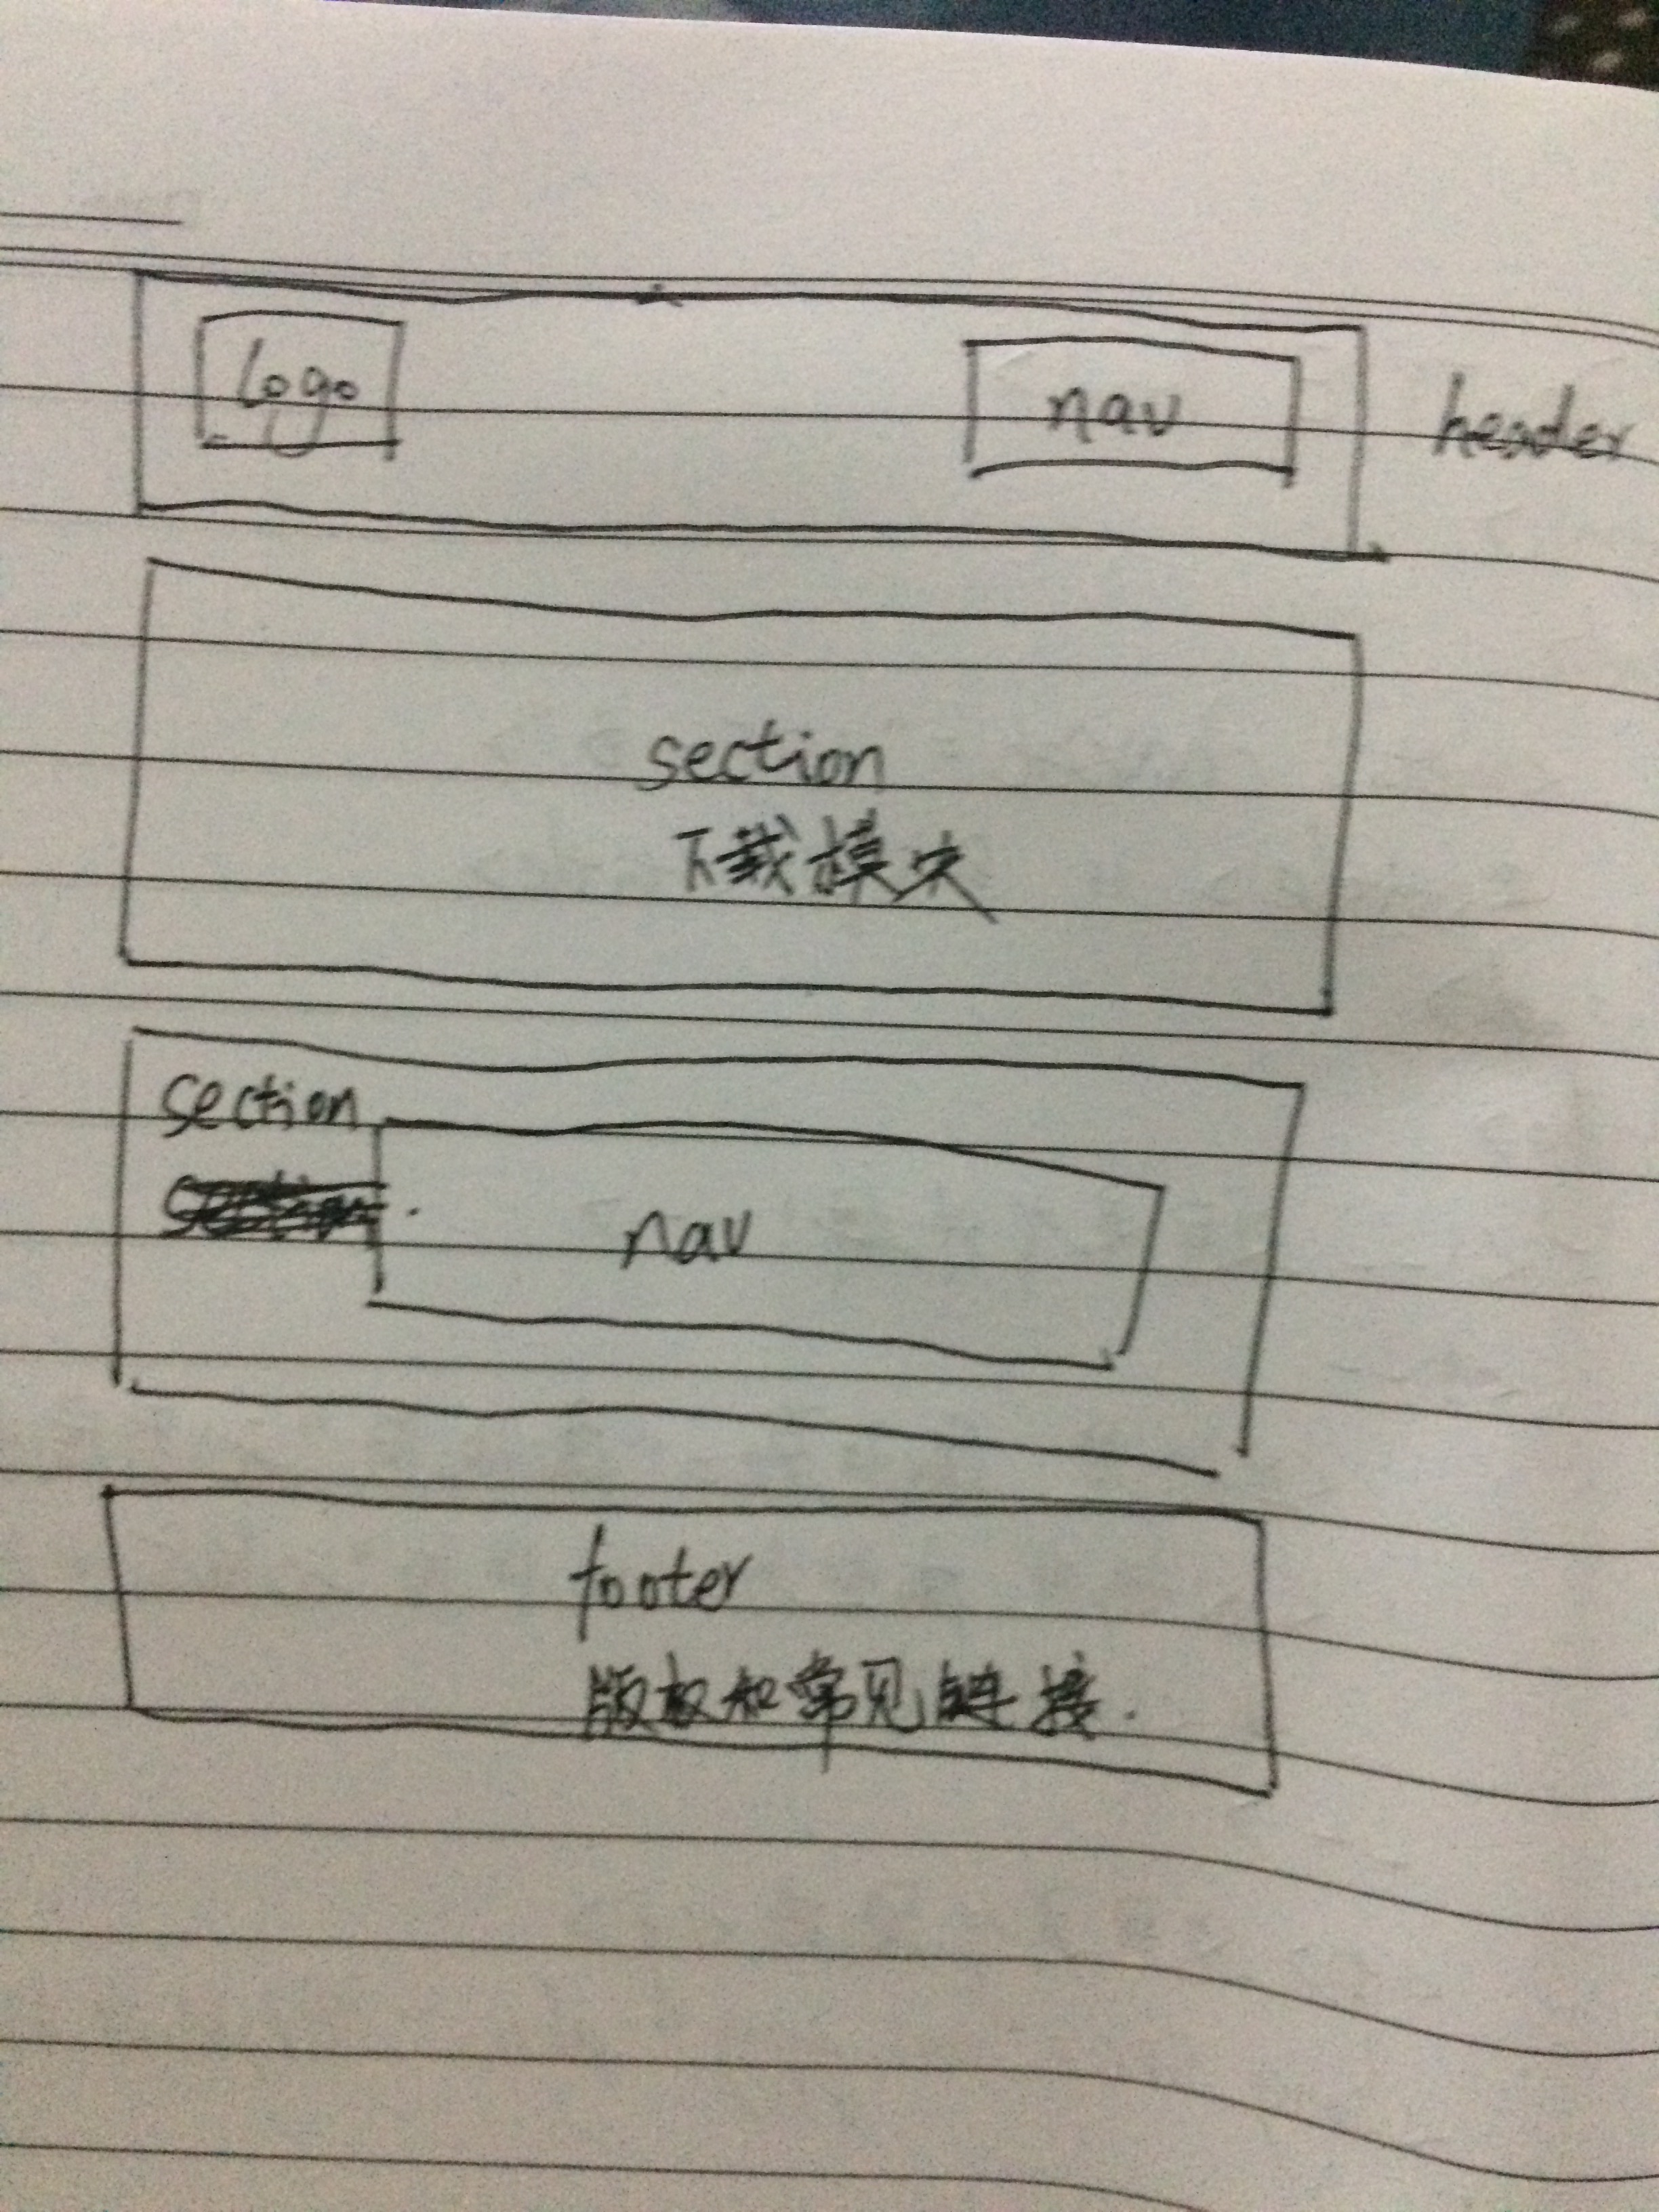 logo
nav
header
section
下载模块
section
nav
footer
版权和常见链接.